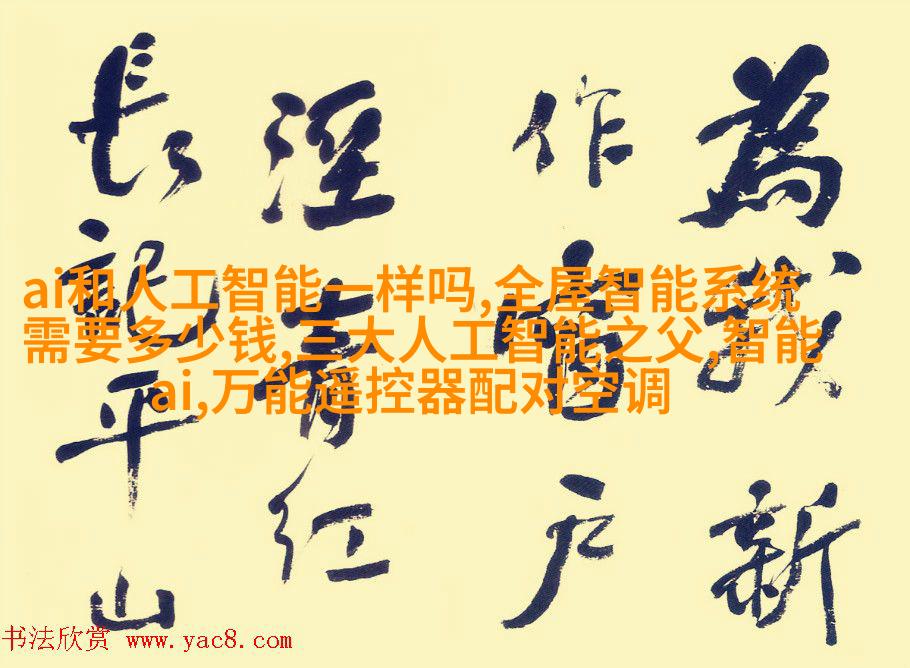 為我新
作窗户
溼青紅
長記平山
ai和人工智能一样吗,全屋智能系统
需要多少钱,三大人工智能之父,智能
ai,万能遥控器配对空调
书法欣赏 www.yac8.com